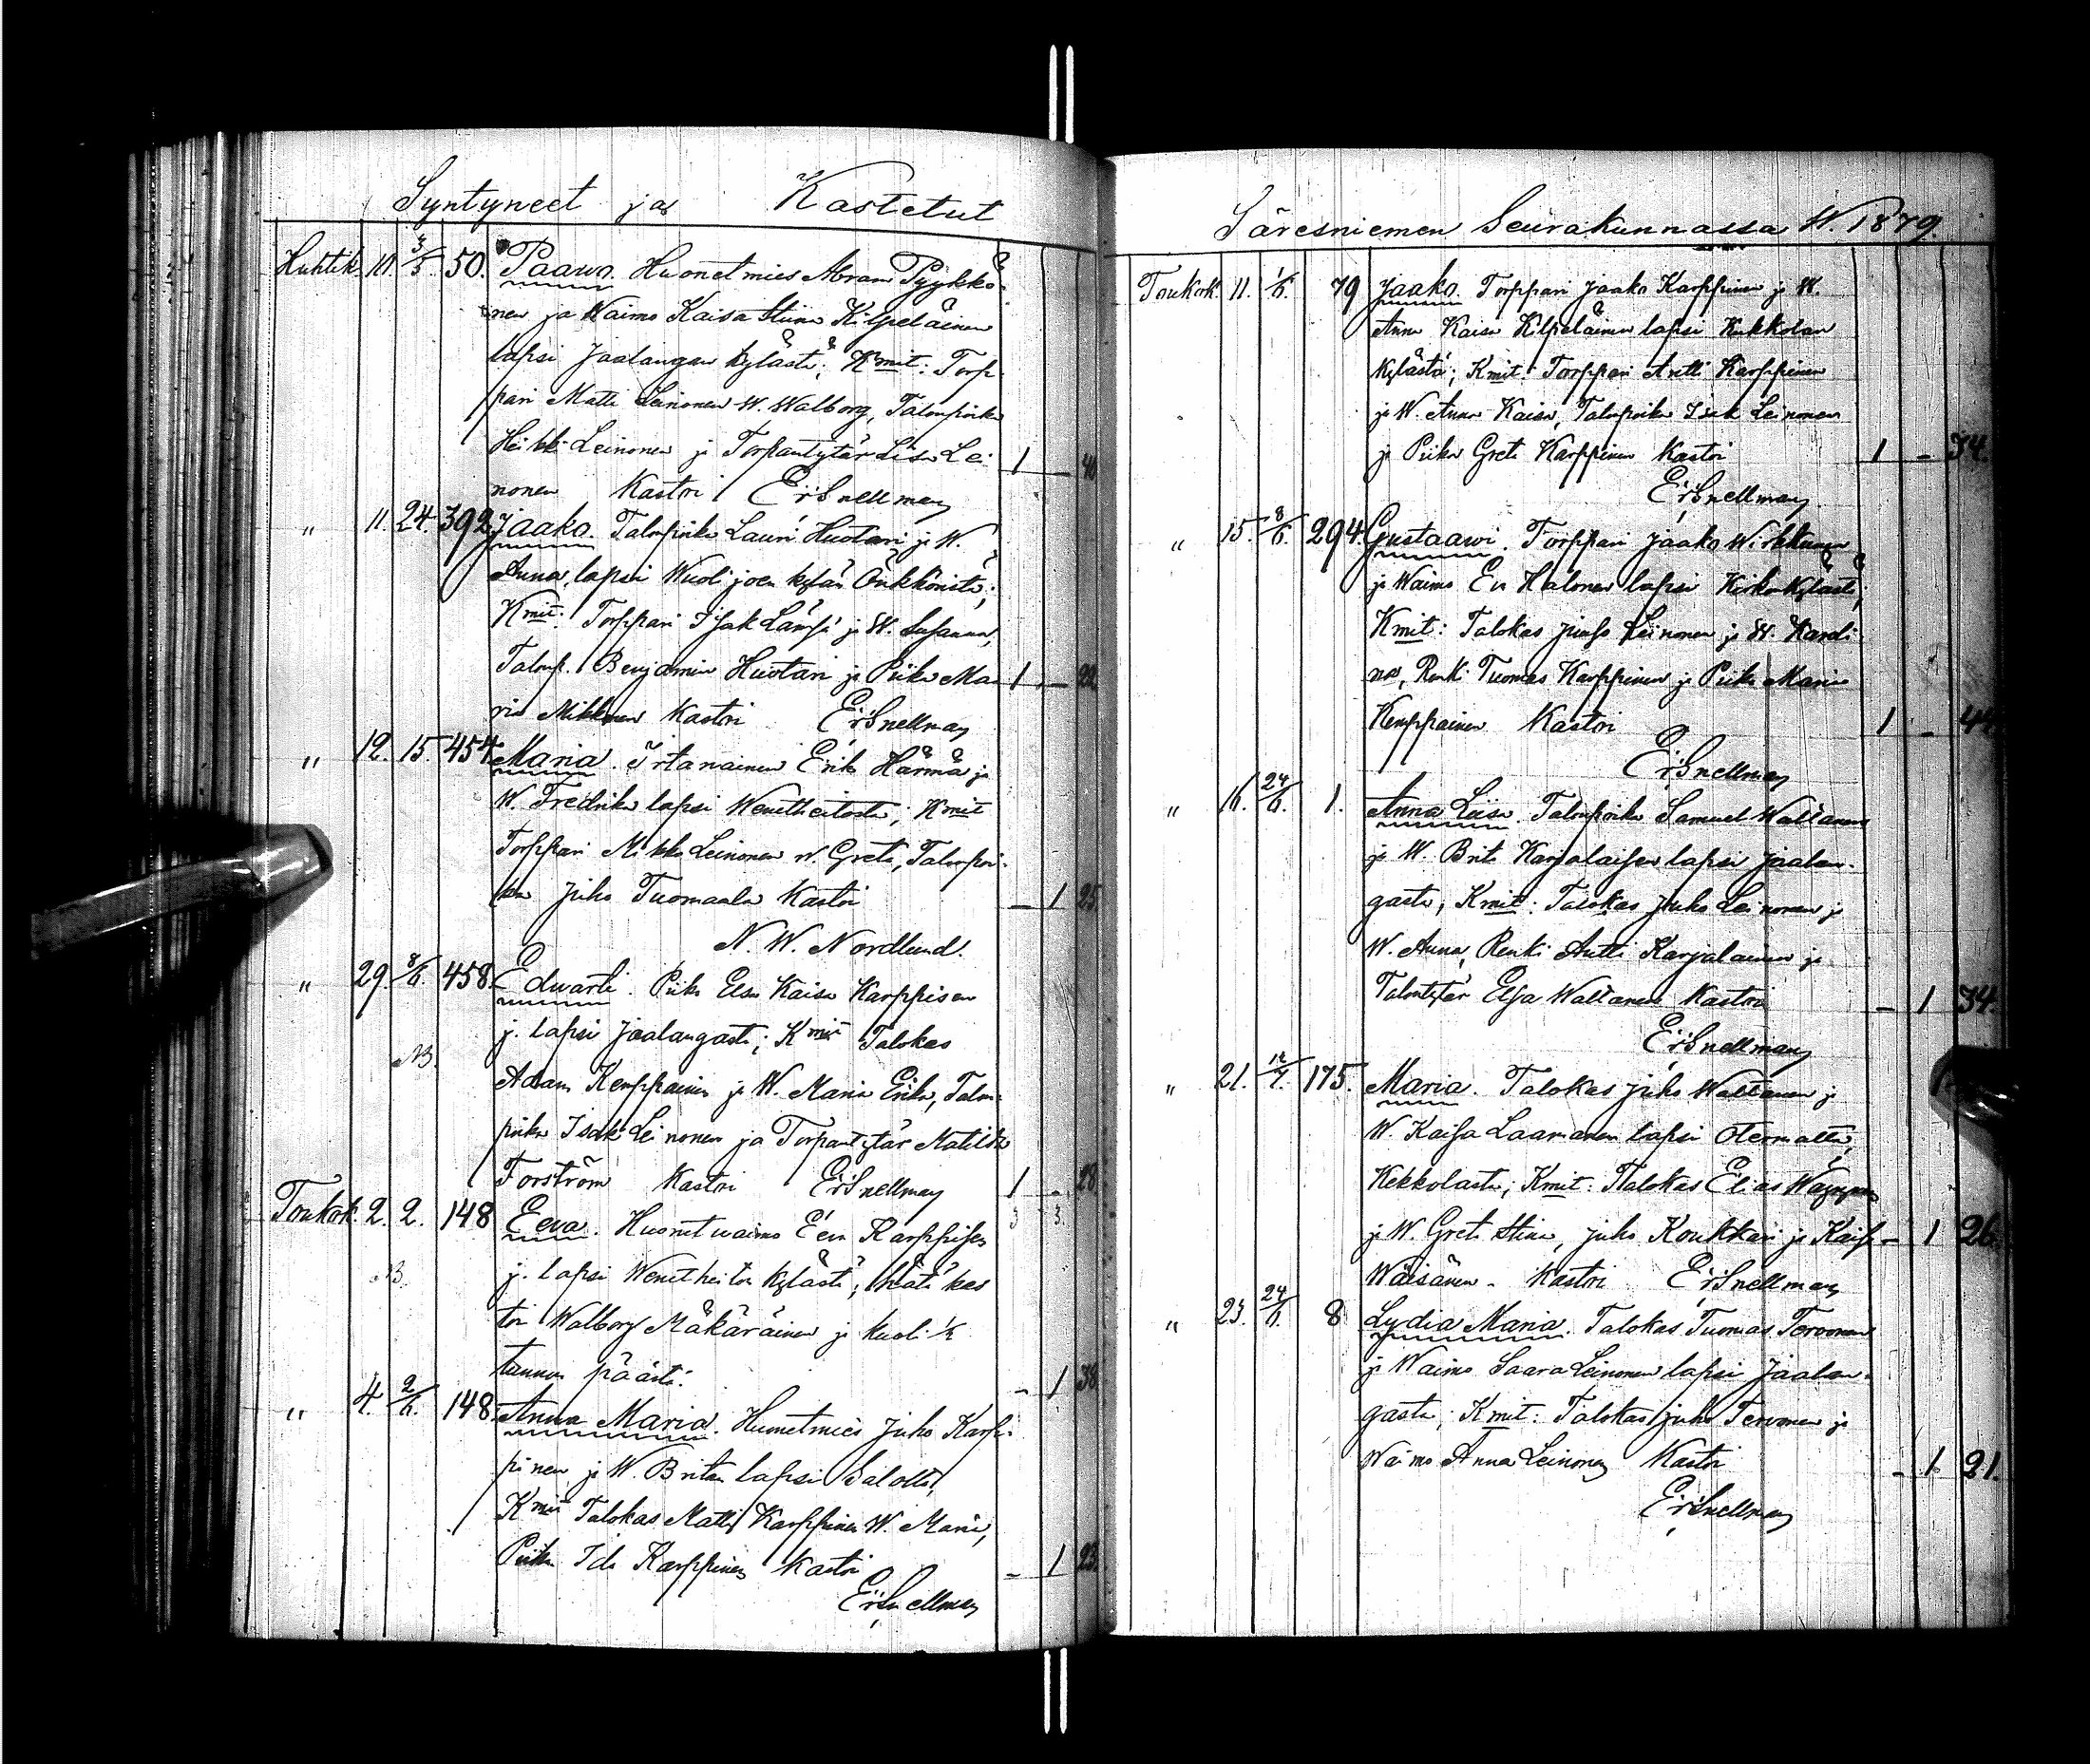 Syntyneet ja Kastetut
Huhtik. 10. 3/5. 50. Paawo. Huonetmies Abram Pyykkö-
nen ja Waimo Kaisa Stiina Kilpeläinen
lapsi Jaalangan kylästä; Kmit: Torp-
pari Matti Leinonen W. Walborg, Talonpoika
Heikki Leinonen ja Torpantytär Liisa Lei- 1 —
nonen Kastoi ErSnellman
" 11. 24. 392. Jaako. Talonpoika Lauri Huotari ja W.
Anna, lapsi Wuolijoen kylän Önkköristä;
Kmit: Torppari Isak Lämsä ja W. Susanna,
Talonp. Benjamin Huotari ja Piika Ma- 1 — 22
ria Mikkonen Kastoi ErSnellman
" 12. 15. 454. Maria. Irtanainen Erik Härmä ja
W. Fredrika lapsi Wenetheitosta; Kmit
Torppari Mikko Leinonen W. Greta, Talonpoi-
ka Juho Tuomaala Kastoi — 1 25.
N. W. Nordlund.
" 29. 8/6. 458. Edwarti. Piika Elsa Kaisa Karppisen
j. lapsi Jaalangasta; Kmit Talokas
NB.
Adam Kemppainen ja W. Maria Erika, Talon-
poika Isak Leinonen ja Torpantytär Matilda
Forström Kastoi ErSnellman 1 — 28.
3 3.
Toukok. 2. 2. 148 Eeva. Huonetwaimo Eeva Karppisen
NB. j. lapsi Wenetheiton kylästä; hätä kas
toi Walborg Mäkäräinen ja kuoli 1/2
tunnin päästä. - 1 38
" 4. 2/6. 148. Anna Maria. Huonetmies Juho Karp-
pinen ja W. Britan lapsi Salolta,
Kmit Talokas Matti Karppinen W. Maria,
Piika Ida Karppinen Kastoi - 1 23.
ErSnellman
Säresniemen Seurakunnassa W. 1879.
Toukok. 11. 1/6. 79 Jaako. Torppari Jaako Karppinen ja W.
Anna Kaisa Kilpeläinen lapsi Kukkolan
kylästä; Kmit: Torppari Antti Karppinen
ja W. Anna Kaisa, Talonpoika Isak Leinonen
ja Piika Greta Karppinen Kastoi 1 - 34.
ErSnellman
" 15. 8/6. 294. Gustaawi. Torppari Jaako Wirkkunen
ja Waimo Eva Halonen lapsi Kirkonkylästä;
Kmit: Talokas Juho Leinonen ja W. Karoli
na, Renki Tuomas Karppinen ja Piika Maria
Kemppainen Kastoi 1 - 44.
ErSnellman
" 16. 24/6. 1. Anna Liisa. Talonpoika Samuel Waltanen
ja W. Brita Karjalaisen lapsi Jaalan-
gasta; Kmit: Talokas Juho Leinonen ja
W. Anna, Renki Antti Karjalainen ja
Talontytär Elsa Waltanen Kastoi - 1 34.
ErSnellman
" 21. 12/7. 175. Maria. Talokas Juho Waltanen ja
W. Kaisa Laamanen lapsi Otermalta,
Kekkolasta; Kmit: Talokas Elias Wäyrynen
ja W. Greta Stina, Juho Koukkari ja Kaisa - 1 26.
Wäisänen - Kastoi ErSnellman
" 23. 24/6. 8 Lydia Maria. Talokas Tuomas Tervonen
ja Waimo Saara Leinonen lapsi Jaalan-
gasta; Kmit: Talokas Juho Tervonen ja
Waimo Anna Leinonen Kastoi - 1. 21.
ErSnellman